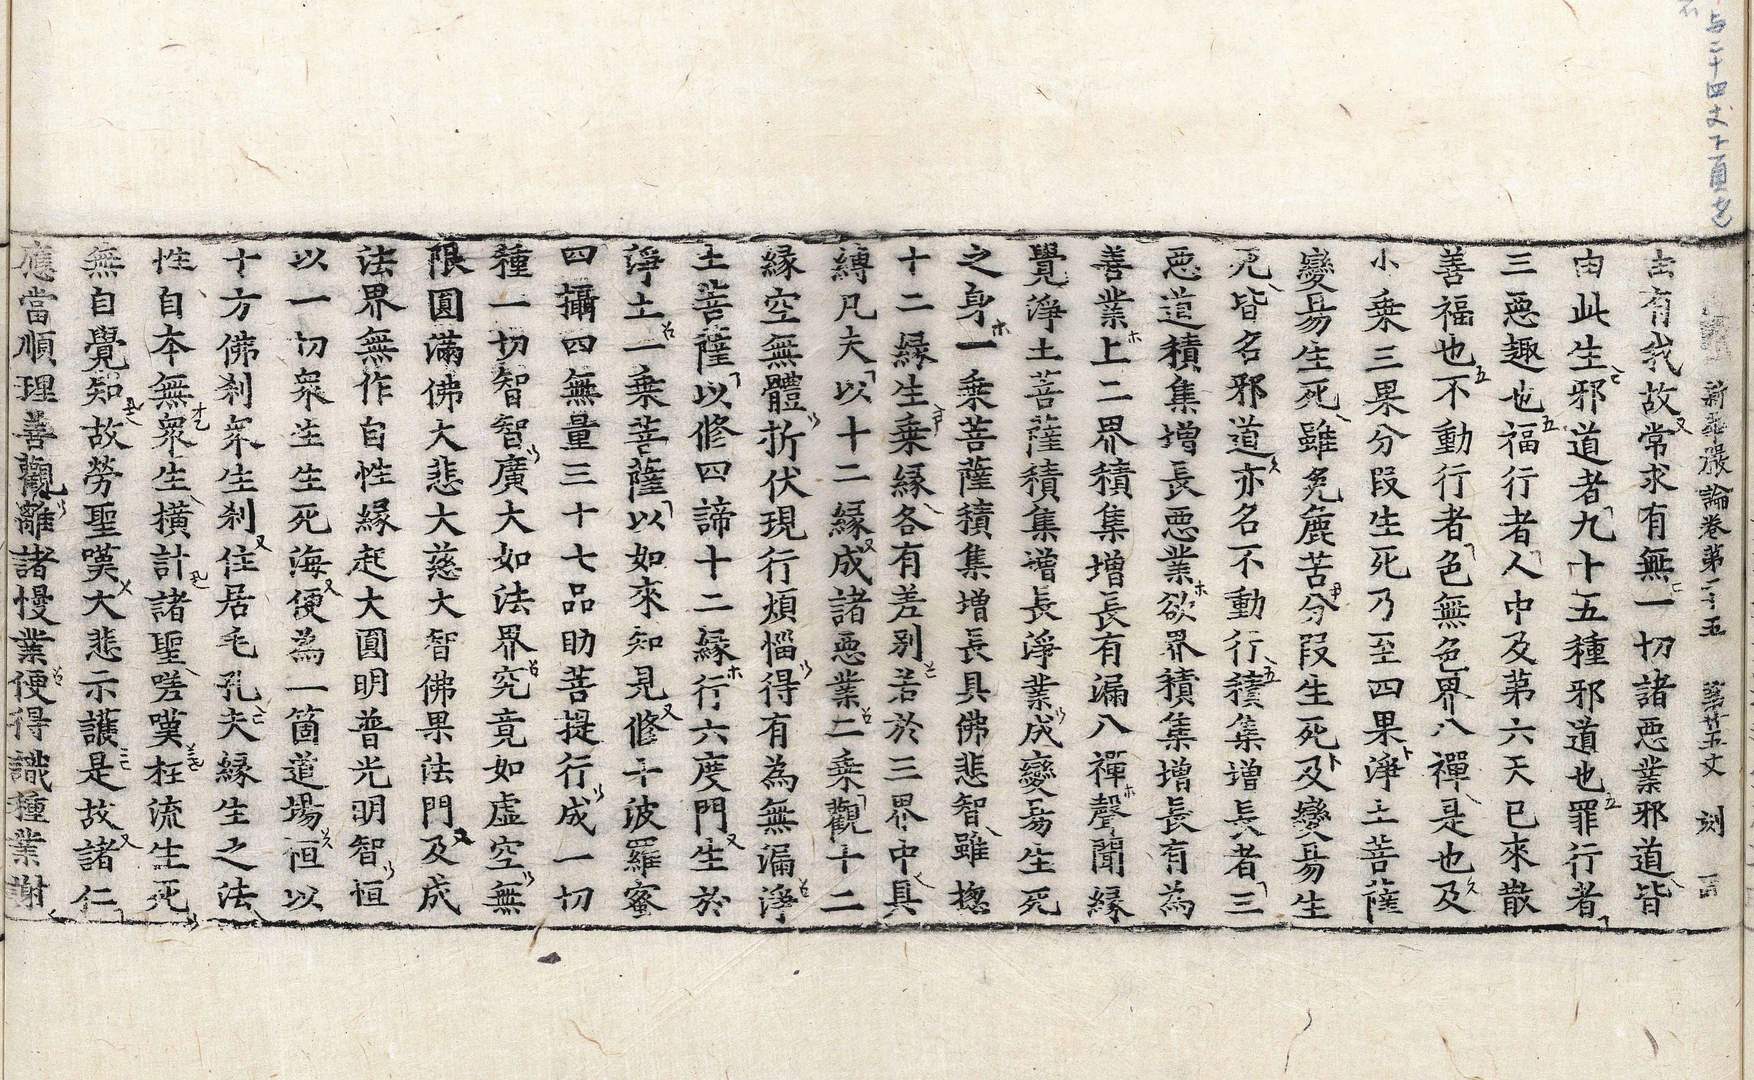 与二十四丈下頁좌
新華嚴論卷第二十五　第廿五丈　刻
由有我故常求有無一切諸惡業邪道皆
由此生邪道者九十五種邪道也罪行者
三惡趣也福行者人中及第六天已來散
善福也不動行者色無色界八禪是也及
小乘三果分段生死乃至四果淨土菩薩
變易生死雖免麁苦分段生死及變易生
死皆名邪道亦名不動行積集增長者三
惡道積集增長惡業欲界積集增長有為
善業上二界積集增長有漏八禪聲聞緣
覺淨土菩薩積集增長淨業成變易生死
之身一乘菩薩積集增長具佛悲智雖揔
十二緣生乘緣各有差別若於三界中具
縛凡夫以十二緣成諸惡業二乘觀十二
緣空無體折伏現行煩惱得有為無漏淨
土菩薩以修四諦十二緣行六度門生於
淨土一乘菩薩以如來知見修十波羅蜜
四攝四無量三十七品助菩提行成一切
種一切智智廣大如法界究竟如虛空無
限圓滿佛大悲大慈大智佛果法門及成
法界無作自性緣起大圓明普光明智恒
以一切衆生生死海便為一箇道場恒以
十方佛剎衆生剎住居毛孔夫緣生之法
性自本無衆生橫計諸聖嗟嘆枉流生死
無自覺知故勞聖嘆大悲示護是故諸仁
應當順理善觀離諸慢業便得識種業謝